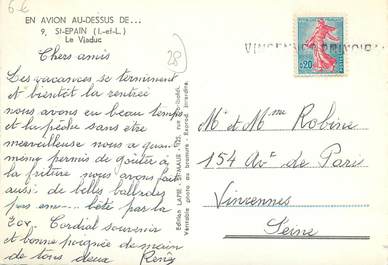 6€
EN AVION AU-DESSUS DE...
9, St-EPAIN (I.-et-L.)
Le Viaduc
28
0,20
Chers amis
Les vacances se terminent
et bientôt la rentrée
nous avons eu beau temps
et la pêche sans être
merveilleuse nous a quand
même permis de goûter à
la friture nous avons fait
aussi de belles ballades
par la
Cordial souvenir
et bonne poignée de main
de tous deux René
Edition LAPIE, St-MAUR
Véritable photo au bromure - Reprod. interdite.
Mr et Mme Robine
154 Av. de Paris
Vincennes
Seine